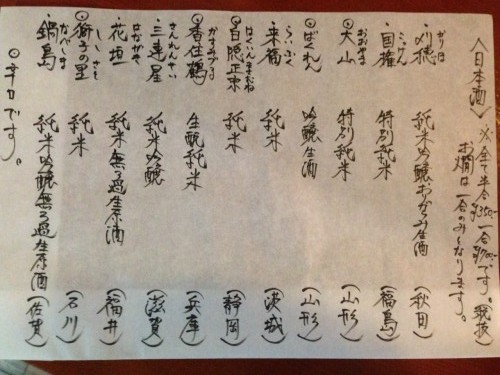 〈日本酒〉 ※全て半合¥350- 一合¥700-です。税抜
お燗は一合のみとなります。
かりほ
・刈穂 純米吟醸おりがらみ生酒 (秋田)
こっけん
・国権 特別純米 (福島)
おおやま
・大山 特別純米 (山形)
◎ばくれん 吟醸生酒 (山形)
らいふく
・来福 純米 (茨城)
はくいんまさむね
◎白隠正宗 純米 (静岡)
かすみつる
◎香住鶴 生酛純米 (兵庫)
さんれんせい
・三連星 純米吟醸 (滋賀)
はながき
・花垣 純米無ろ過生原酒 (福井)
ししのさと
◎獅子の里 純米 (石川)
なべしま
・鍋島 純米吟醸無ろ過生原酒 (佐賀)
◎辛口です。